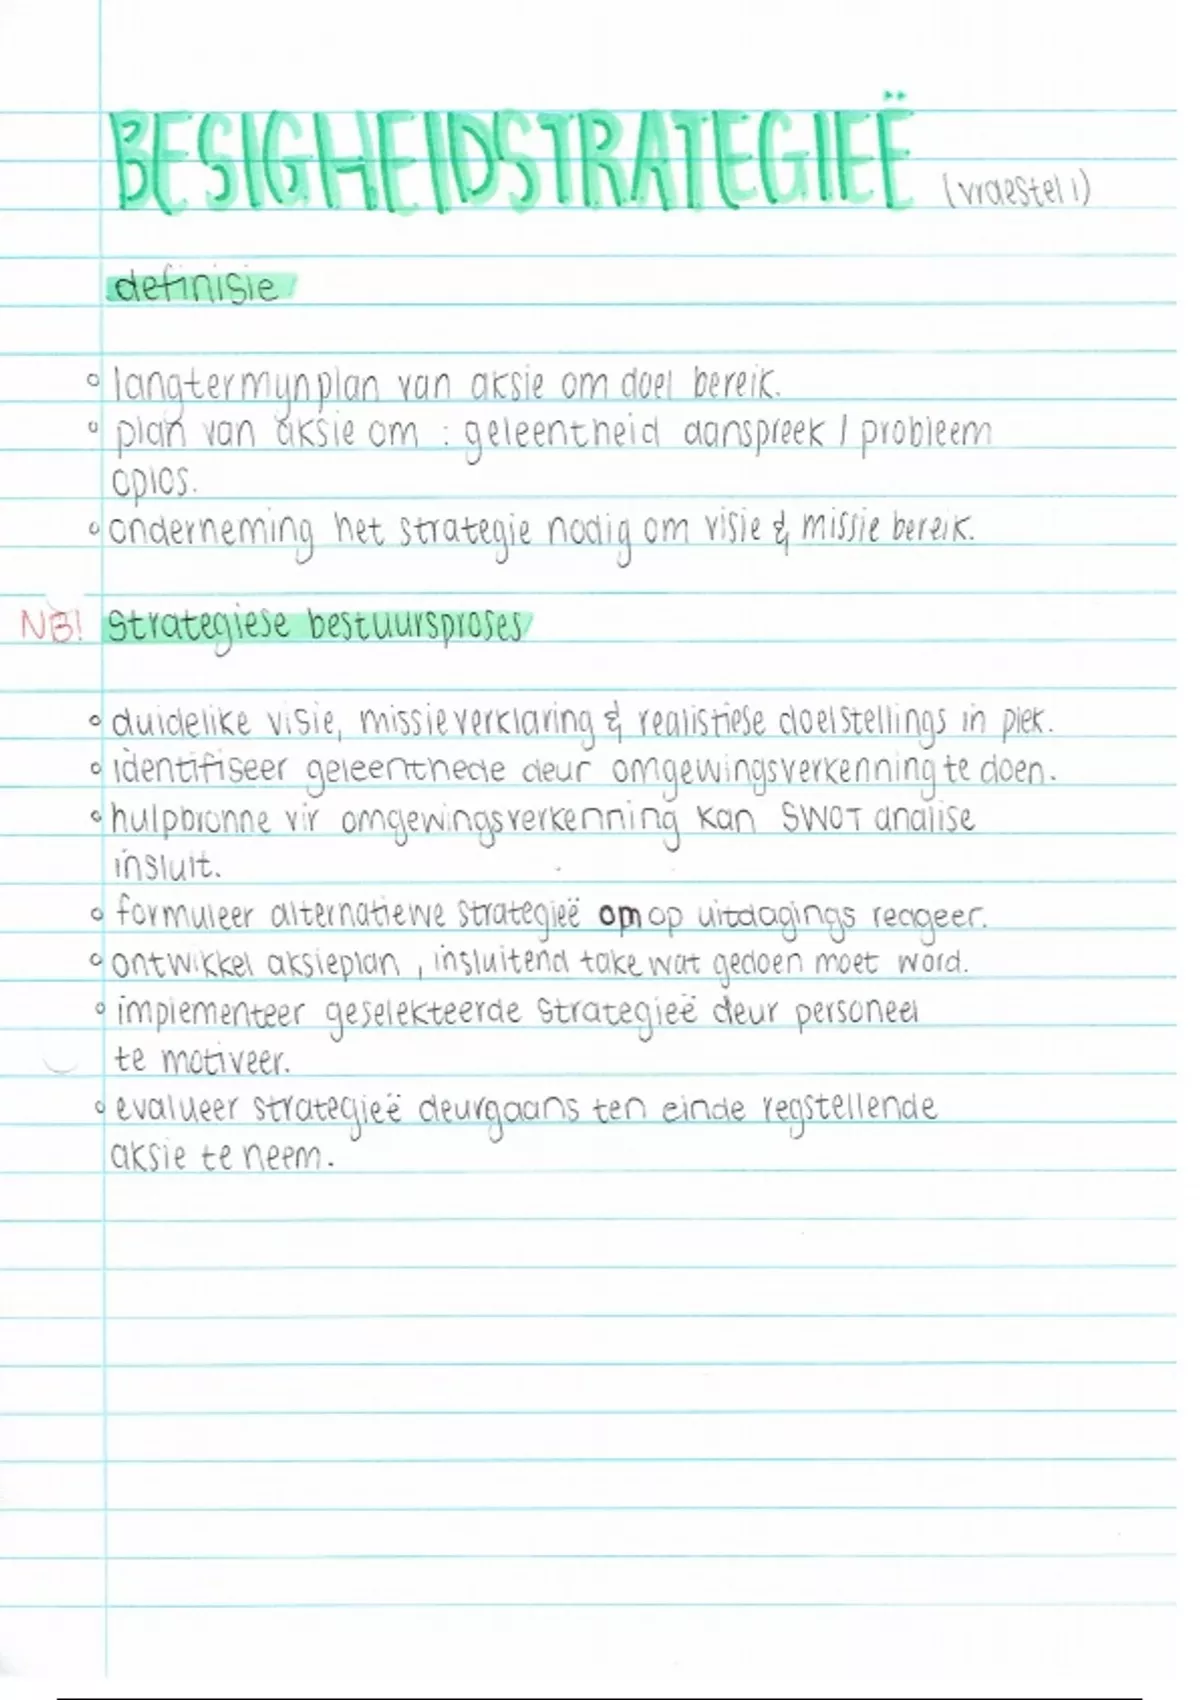 BESIGHEIDSTRATEGIEË (vraestel 1)
definisie
langtermynplan van aksie om doel bereik.
plan van aksie om : geleentheid aanspreek / probleem
oplos.
onderneming het strategie nodig om visie & missie bereik.
NB! Strategiese bestuursproses
duidelike visie, missieverklaring & realistiese doelstellings in plek.
identifiseer geleenthede deur omgewingsverkenning te doen.
hulpbronne vir omgewingsverkenning kan SWOT analise
insluit.
formuleer alternatiewe strategieë om op uitdagings reageer.
ontwikkel aksieplan, insluitend take wat gedoen moet word.
implementeer geselekteerde strategieë deur personeel
te motiveer.
evalueer strategieë deurgaans ten einde regstellende
aksie te neem.